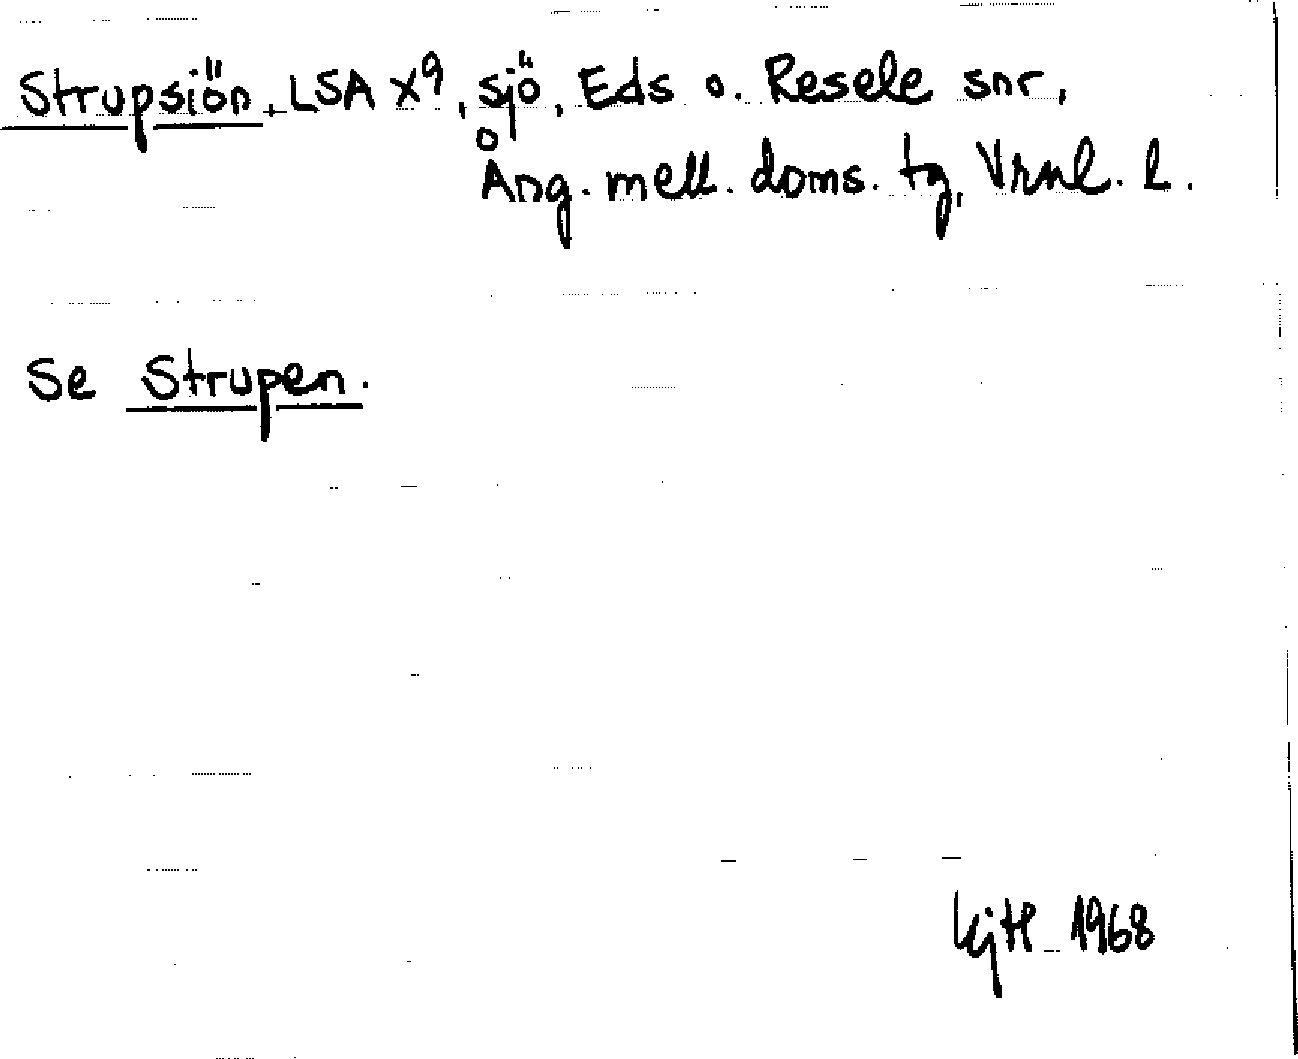 Strupsiön, LSA X9, sjö, Eds o. Resele snr,
Ång. mell. doms. tg, Vrnl. l.
Se Strupen.
1968